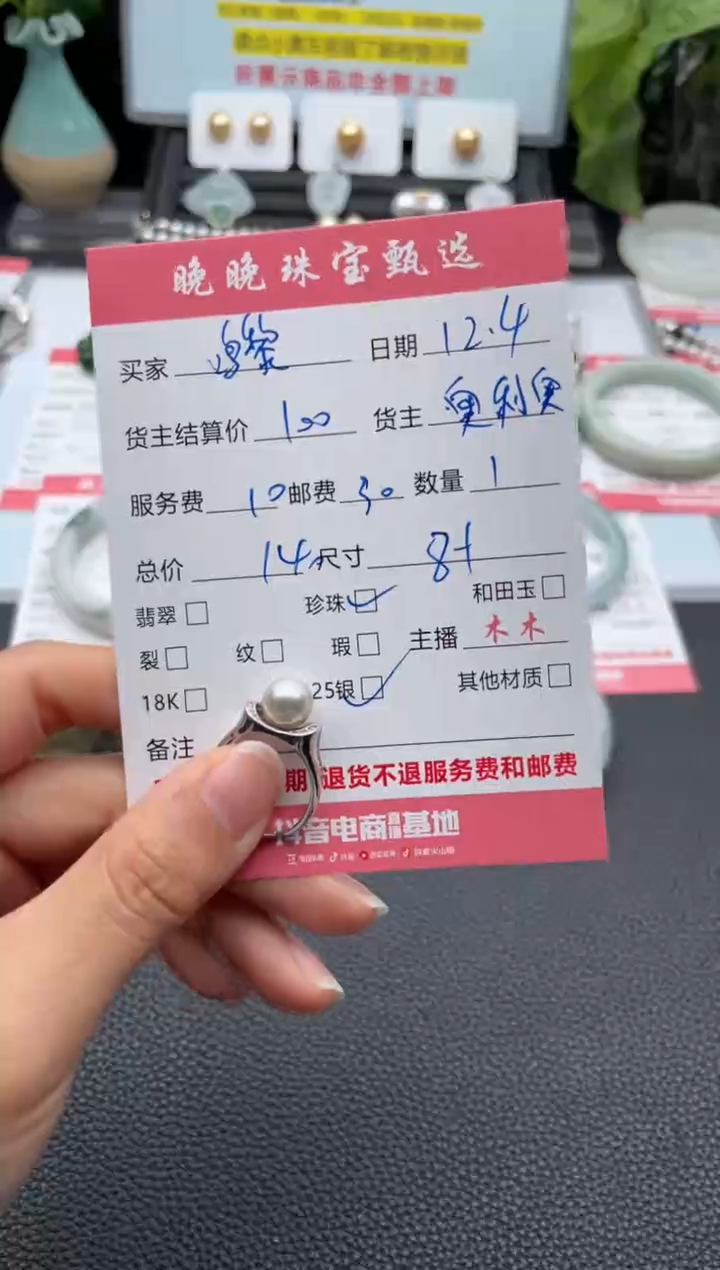 晚晚珠宝甄选
买家 日期 12.4
货主结算价 100 货主 奥利奥
服务费 10 邮费 30 数量 1
总价 14 尺寸 8+
翡翠 珍珠 和田玉
裂 纹 瑕 主播 木木
18K 25银 其他材质
备注
期 退货不退服务费和邮费
抖音电商直播基地